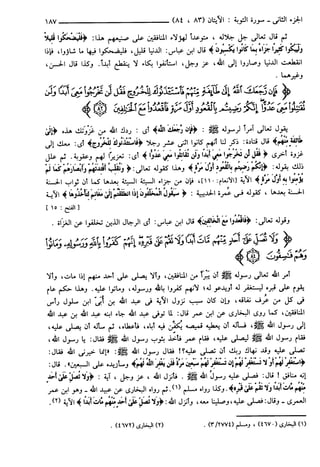 الجزء الثاني - سورة التوبة : الآيتان (٨٣ ، ٨٤) ١٨٧
ثم قال تعالى جل جلاله ، متوعداً لهؤلاء المنافقين على صنيعهم هذا: ﴿فَلْيَضْحَكُوا قَلِيلاً
وَلْيَبْكُوا كَثِيرًا جَزَاءً بِمَا كَانُوا يَكْسِبُونَ﴾ قال ابن عباس: الدنيا قليل، فليضحكوا فيها ما شاؤوا، فإذا
انقطعت الدنيا وصاروا إلى الله، عز وجل، استأنفوا بكاء لا ينقطع أبداً. وكذا قال الحسن،
وغيرهما .
فَإِن رَّجَعَكَ اللَّهُ إِلَىٰ طَائِفَةٍ مِّنْهُمْ فَاسْتَأْذَنُوكَ لِلْخُرُوجِ فَقُل لَّن تَخْرُجُوا مَعِيَ أَبَدًا وَلَن
تُقَاتِلُوا مَعِيَ عَدُوًّا إِنَّكُمْ رَضِيتُم بِالْقُعُودِ أَوَّلَ مَرَّةٍ فَاقْعُدُوا مَعَ الْخَالِفِينَ
يقول تعالى آمراً لرسوله ﷺ : ﴿فَإِن رَّجَعَكَ اللَّهُ﴾ أي : ردك الله من غزوتك هذه ﴿إِلَىٰ
طَائِفَةٍ مِّنْهُمْ﴾ قال قتادة: ذكر لنا أنهم كانوا اثني عشر رجلاً ﴿فَاسْتَأْذَنُوكَ لِلْخُرُوجِ﴾ أي: معك إلى
غزوة أخرى ﴿فَقُل لَّن تَخْرُجُوا مَعِيَ أَبَدًا وَلَن تُقَاتِلُوا مَعِيَ عَدُوًّا﴾ أي: تعزيراً لهم وعقوبة. ثم علل
ذلك بقوله: ﴿إِنَّكُمْ رَضِيتُم بِالْقُعُودِ أَوَّلَ مَرَّةٍ﴾ وهذا كقوله تعالى: ﴿وَنُقَلِّبُ أَفْئِدَتَهُمْ وَأَبْصَارَهُمْ كَمَا لَمْ
يُؤْمِنُوا بِهِ أَوَّلَ مَرَّةٍ﴾ الآية [الأنعام: ١١٠]، فإن من جزاء السيئة السيئة بعدها كما أن ثواب الحسنة
الحسنة بعدها ، كقوله في عمرة الحديبية : ﴿سَيَقُولُ الْمُخَلَّفُونَ إِذَا انطَلَقْتُمْ إِلَىٰ مَغَانِمَ لِتَأْخُذُوهَا﴾ الآية
[الفتح : ١٥]
وقوله تعالى: ﴿فَاقْعُدُوا مَعَ الْخَالِفِينَ﴾ قال ابن عباس: أي الرجال الذين تخلفوا عن الغزاة .
وَلَا تُصَلِّ عَلَىٰ أَحَدٍ مِّنْهُم مَّاتَ أَبَدًا وَلَا تَقُمْ عَلَىٰ قَبْرِهِ إِنَّهُمْ كَفَرُوا بِاللَّهِ وَرَسُولِهِ وَمَاتُوا
وَهُمْ فَاسِقُونَ
أمر الله تعالى رسوله ﷺ أن يَبْرَأ من المنافقين، وألا يصلي على أحد منهم إذا مات، وألا
يقوم على قبره ليستغفر له أو يدعو له؛ لأنهم كفروا بالله ورسوله، وماتوا عليه. وهذا حكم عام
في كل من عرف نفاقه، وإن كان سبب نزول الآية في عبد الله بن أُبيّ ابن سلول رأس
المنافقين، كما روى البخاري عن ابن عمر قال: لما توفى عبد الله جاء ابنه عبد الله بن عبد الله
إلى رسول الله ﷺ، فسأله أن يعطيه قميصه يُكفِّن فيه أباه، فأعطاه، ثم سأله أن يصلي عليه،
فقام رسول الله ﷺ ليصلي عليه، فقام عمر فأخذ بثوب رسول الله ﷺ فقال: يا رسول الله،
تصلي عليه وقد نهاك ربك أن تصلي عليه؟! فقال رسول الله ﷺ: «إنما خيرني الله فقال:
﴿اسْتَغْفِرْ لَهُمْ أَوْ لَا تَسْتَغْفِرْ لَهُمْ إِن تَسْتَغْفِرْ لَهُمْ سَبْعِينَ مَرَّةً فَلَن يَغْفِرَ اللَّهُ لَهُمْ﴾ وسأزيده على السبعين». قال:
إنه منافق ! قال: فصلى عليه رسول الله ﷺ. فأنزل الله ، عز وجل ، آية : ﴿وَلَا تُصَلِّ عَلَىٰ أَحَدٍ
مِّنْهُم مَّاتَ أَبَدًا وَلَا تَقُمْ عَلَىٰ قَبْرِهِ﴾. وكذا رواه مسلم (١). ثم رواه البخاري عن عبيد الله - وهو ابن عمر
العمري - وقال: فصلى عليه، وصلينا معه، وأنزل الله: ﴿وَلَا تُصَلِّ عَلَىٰ أَحَدٍ مِّنْهُم مَّاتَ أَبَدًا﴾ الآية (٢).
(١) البخاري (٤٦٧٠) ، ومسلم (٣/٢٧٧٤) . (٢) البخاري (٤٦٧٢) .